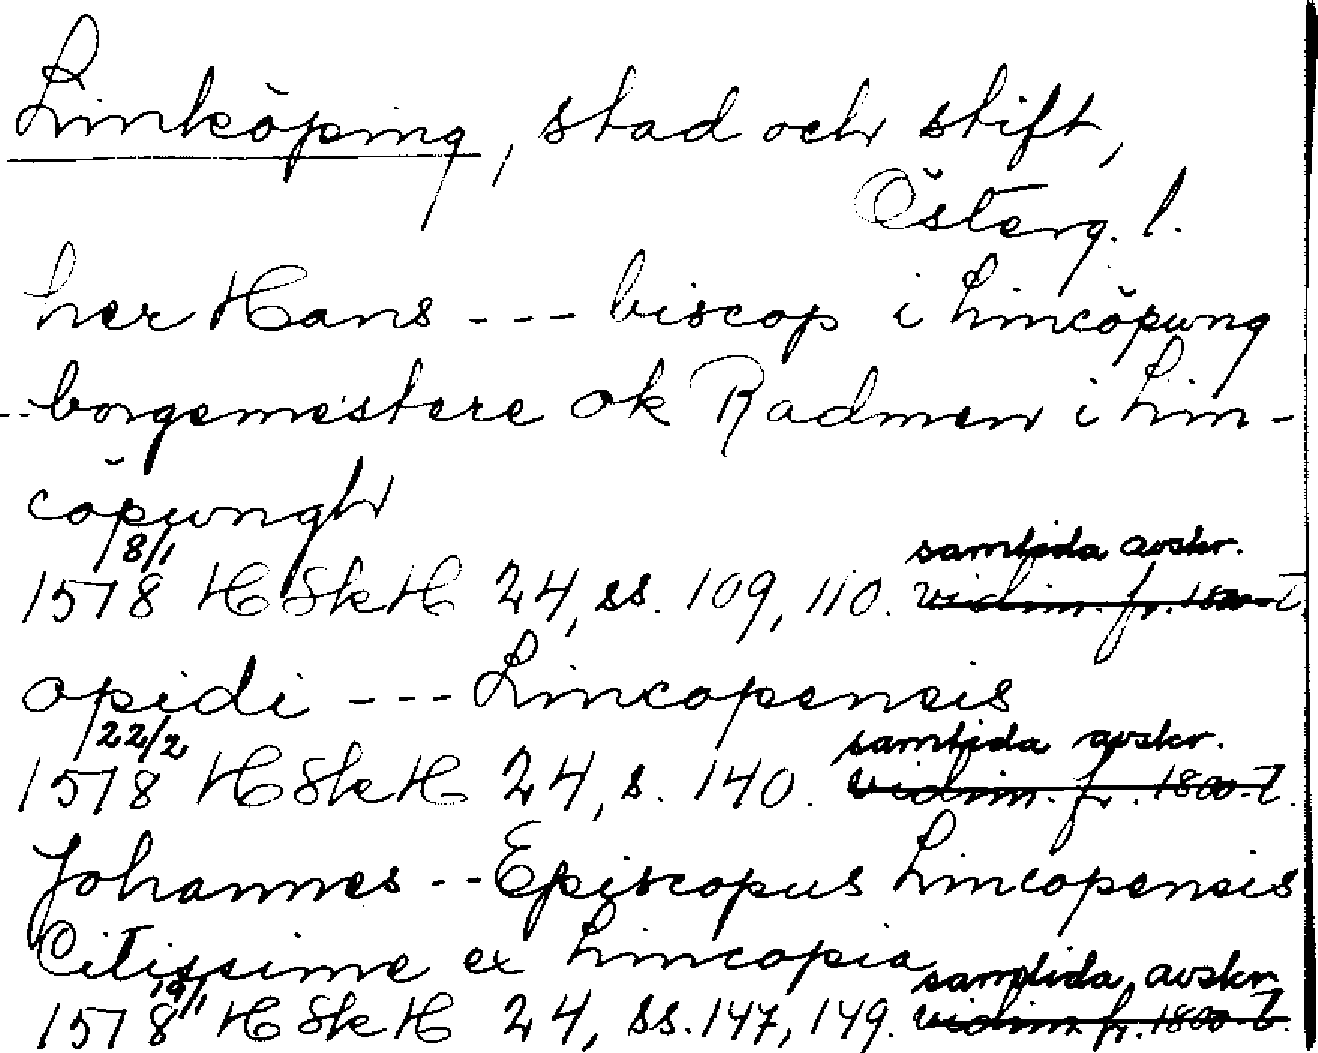 Linköping, stad och stift,
Österg. l.
her Hans --- biscop i Lincöpung
--borgemestere ok Radmen i Lin-
cöpungh
1578 8/1 HSkH 24, ss. 109, 110. samtida avskr. vidim. fr. 1800-t.
opidi --- Lincopensis
1578 22/2 HSkH 24, s. 140. samtida avskr. vidim. fr. 1800-t.
Johannes -- Episcopus Lincopensis
Citissime ex Lincopia
1578 19/1 HSkH 24, ss. 147, 149. samtida avskr. vidim. fr. 1800-t.